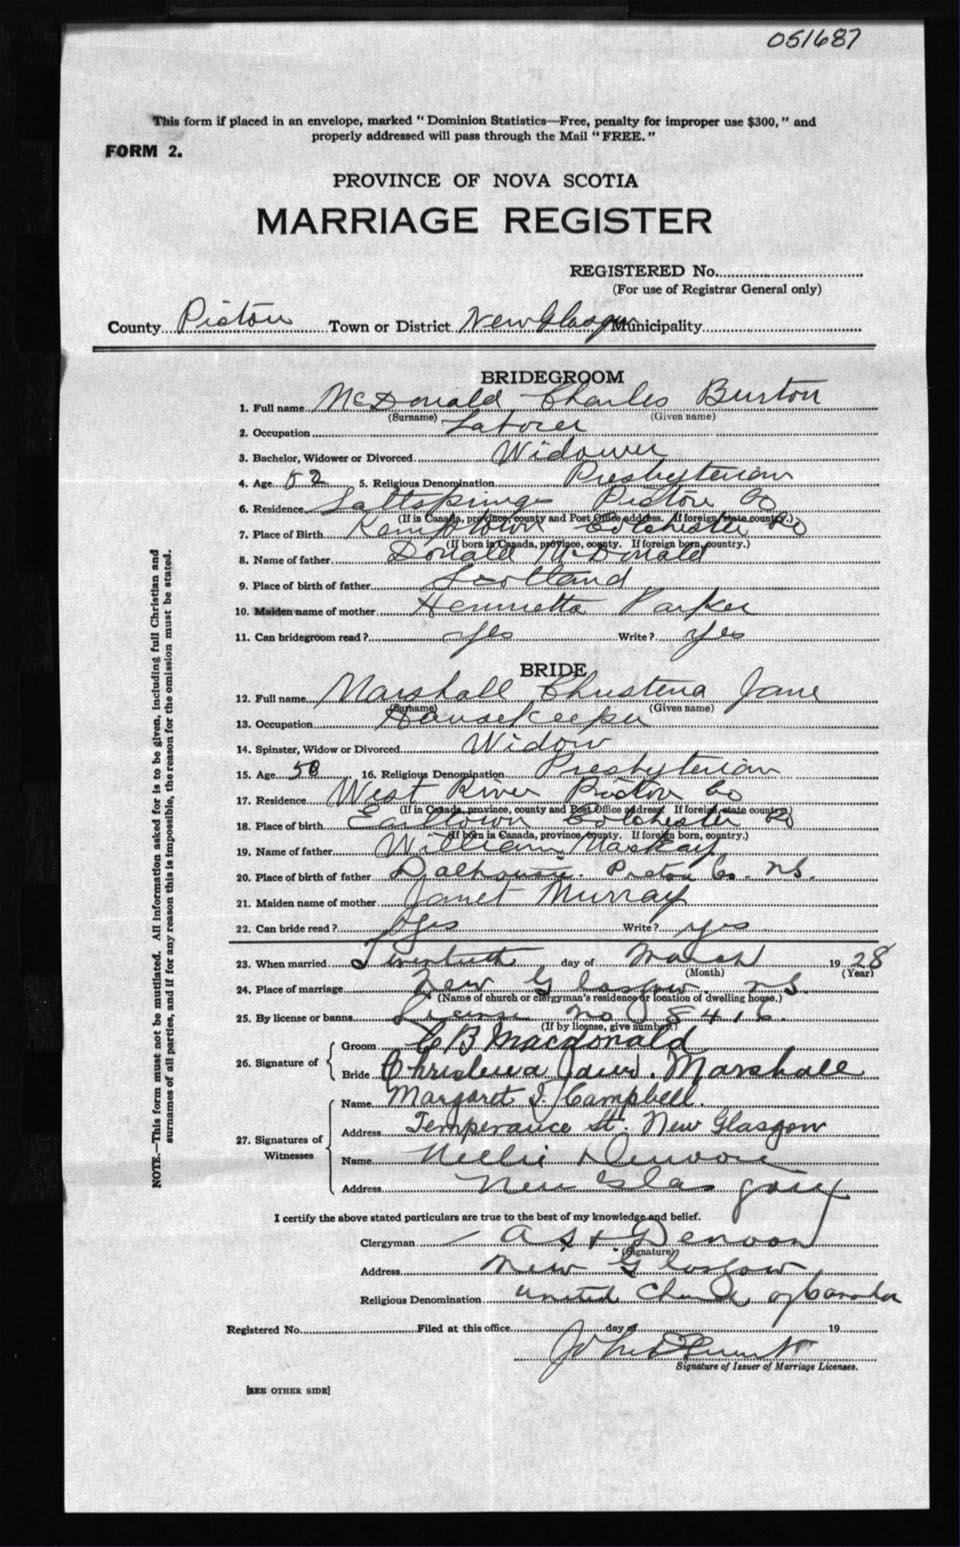 051687
This form if placed in an envelope, marked "Dominion Statistics—Free, penalty for improper use $300," and
properly addressed will pass through the Mail "FREE."
FORM 2.
PROVINCE OF NOVA SCOTIA
MARRIAGE REGISTER
REGISTERED No.
(For use of Registrar General only)
County Pictou Town or District New Glasgow Municipality
BRIDEGROOM
1. Full name McDonald Charles Burton
(Surname) (Given name)
2. Occupation Laborer
3. Bachelor, Widower or Divorced Widower
4. Age 52 5. Religious Denomination Presbyterian
6. Residence Saltsprings Pictou Co
(If in Canada, province, county and Post Office address. If foreign, state country.)
7. Place of Birth Kemptown Colchester Co
(If born in Canada, province, county. If foreign born, country.)
8. Name of father Donald McDonald
9. Place of birth of father Scotland
10. Maiden name of mother Henrietta Parker
11. Can bridegroom read? Yes Write? Yes
BRIDE
12. Full name Marshall Christena Jane
(Surname) (Given name)
13. Occupation Housekeeper
14. Spinster, Widow or Divorced Widow
15. Age 50 16. Religious Denomination Presbyterian
17. Residence West River Pictou Co
(If in Canada, province, county and Post Office address. If foreign, state country.)
18. Place of birth Earltown Colchester Co
(If born in Canada, province, county. If foreign born, country.)
19. Name of father William MacKay
20. Place of birth of father Dalhousie. Pictou Co. N.S.
21. Maiden name of mother Janet Murray
22. Can bride read? Yes Write? Yes
23. When married Twentieth day of March 19 28
(Month) (Year)
24. Place of marriage New Glasgow N.S.
(Name of church or clergyman's residence or location of dwelling house.)
25. By license or banns License No 8416.
(If by license, give number.)
26. Signature of
Groom C B Macdonald
Bride Christena Jane Marshall
27. Signatures of Witnesses
Name Margaret Campbell.
Address Temperance St. New Glasgow
Name Nellie Denoon
Address New Glasgow
I certify the above stated particulars are true to the best of my knowledge and belief.
Clergyman Denoon
(Signature)
Address New Glasgow
Religious Denomination United Church of Canada
Registered No. Filed at this office day of 19
John
Signature of Issuer of Marriage Licenses.
[SEE OTHER SIDE]
NOTE.—This form must not be mutilated. All information asked for is to be given, including full Christian and
surnames of all parties, and if for any reason this is impossible, the reason for the omission must be stated.